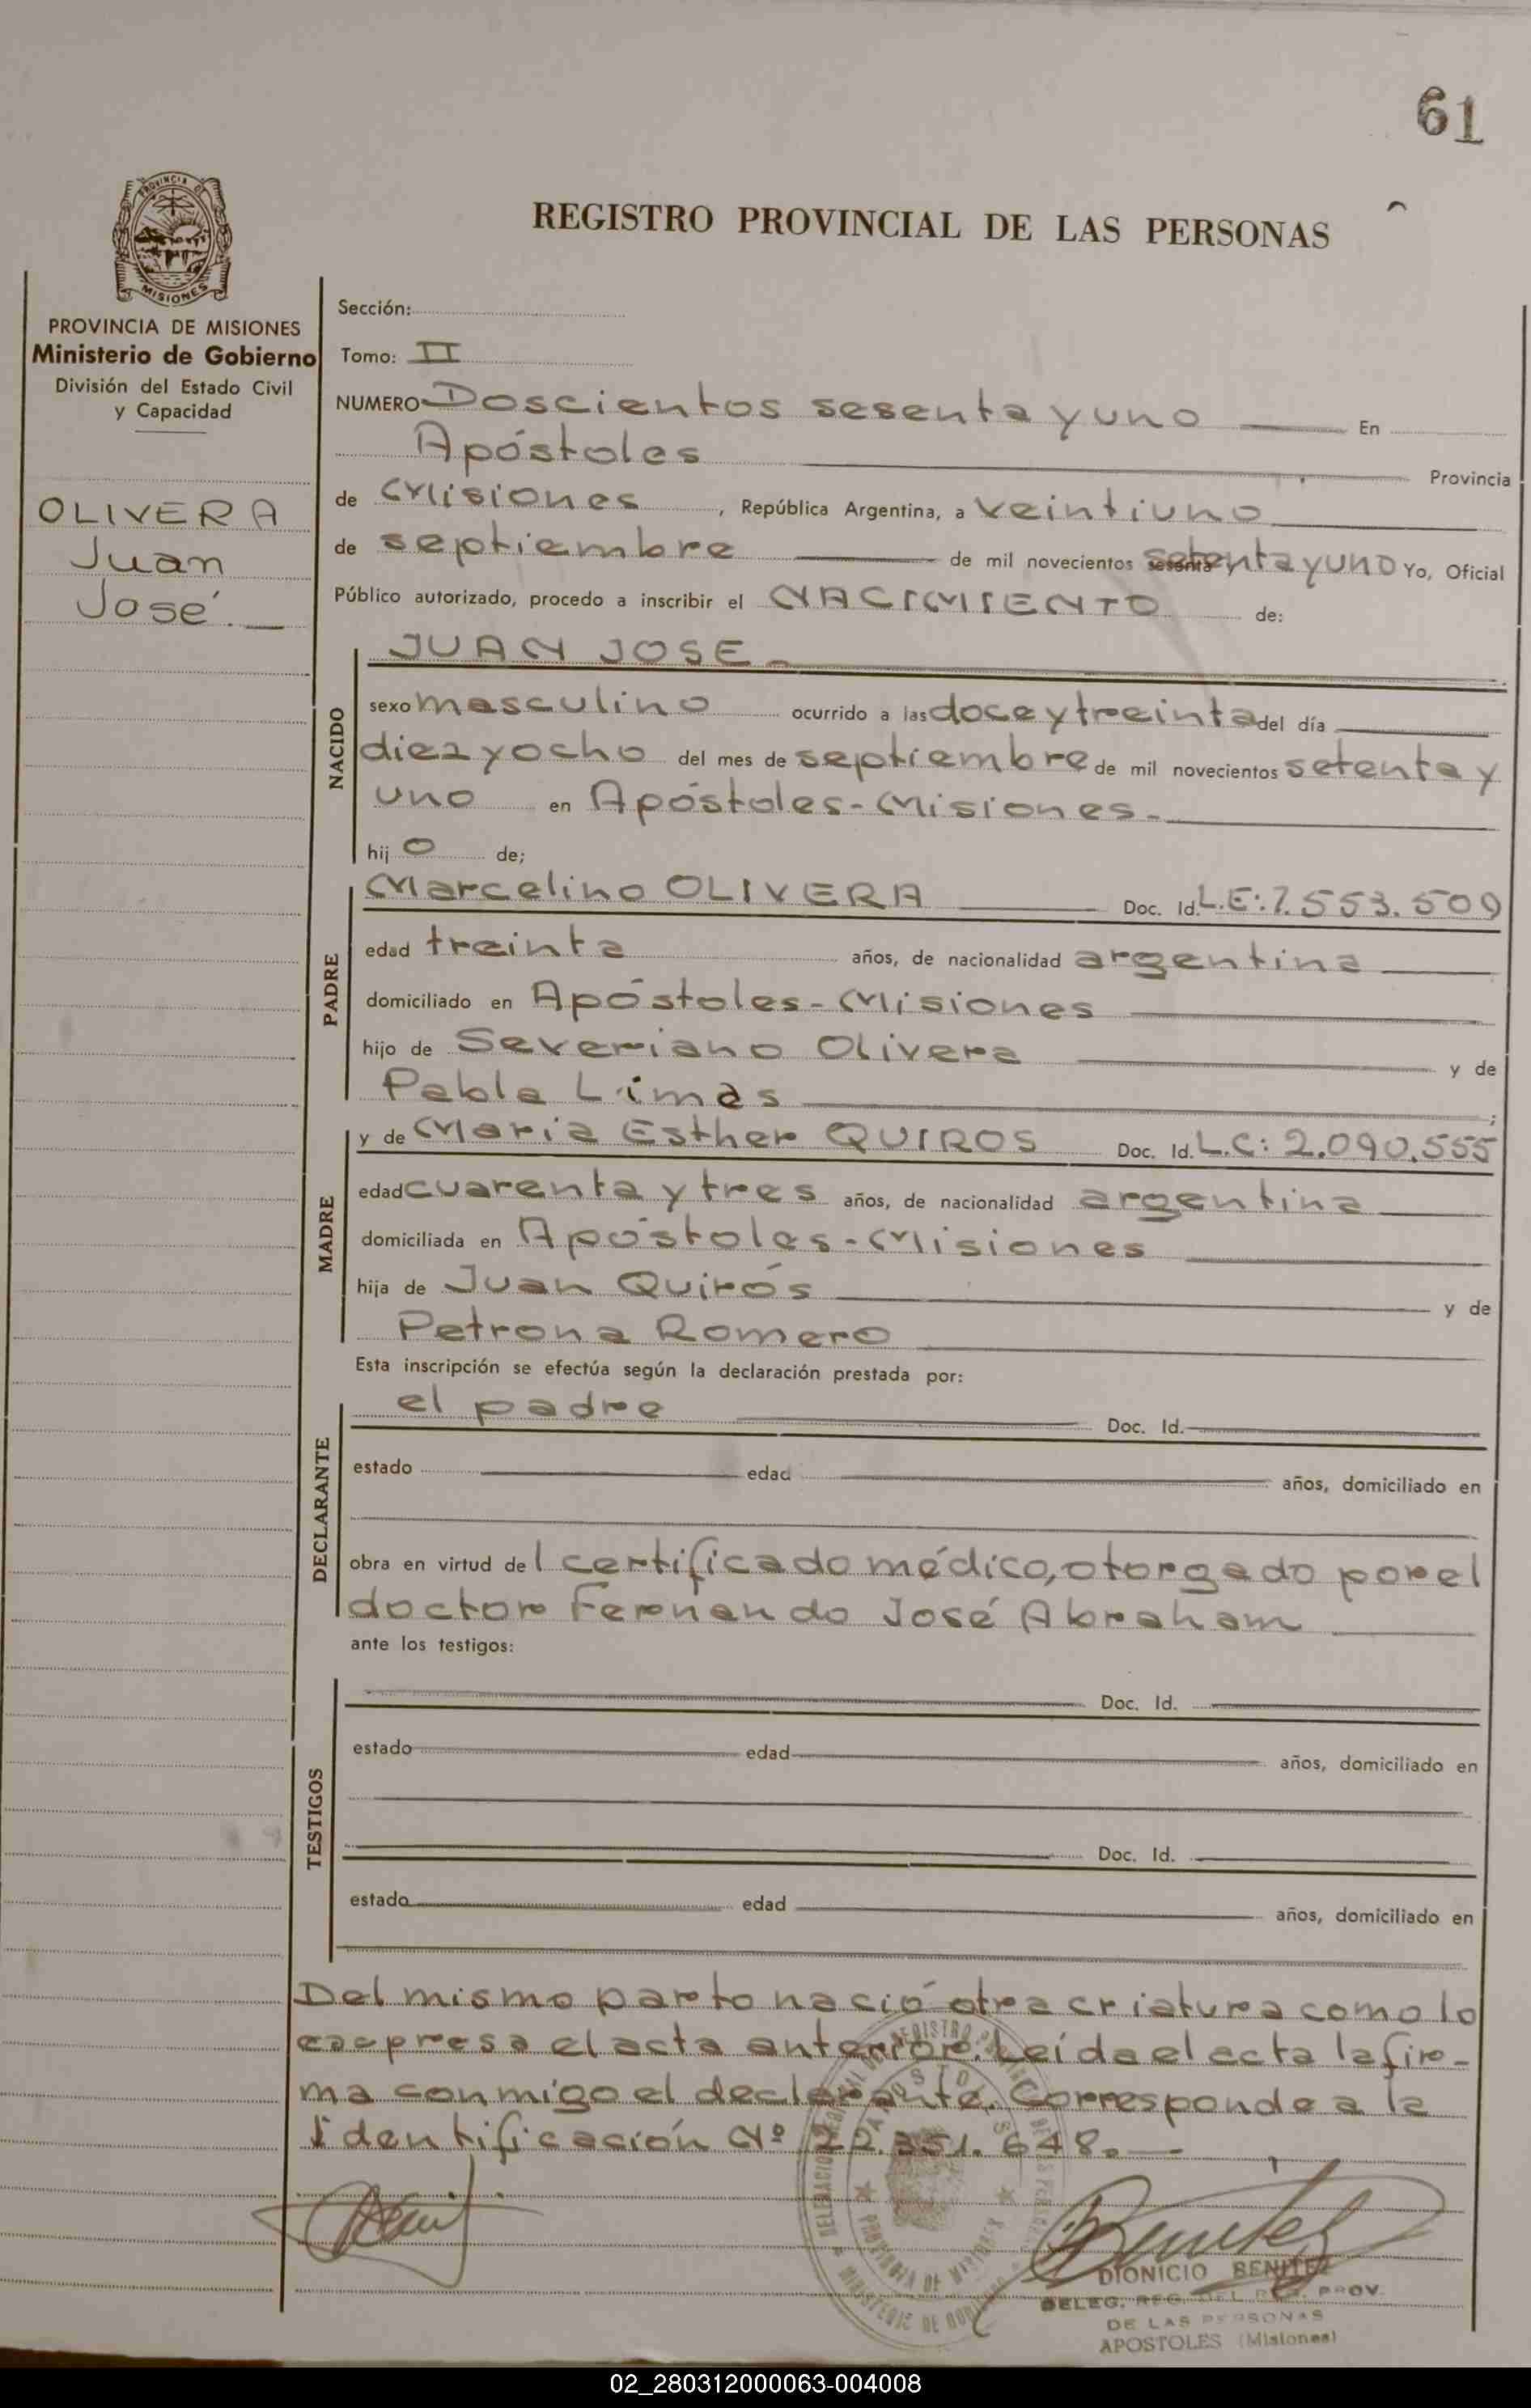 61
REGISTRO PROVINCIAL DE LAS PERSONAS
PROVINCIA DE
MISIONES
PROVINCIA DE MISIONES
Ministerio de Gobierno
División del Estado Civil
y Capacidad
OLIVERA
Juan
José.
Sección:
Tomo: II
NUMERO Doscientos sesenta y uno En
Apóstoles Provincia
de Misiones, República Argentina, a veintiuno
de septiembre de mil novecientos setenta y uno Yo, Oficial
Público autorizado, procedo a inscribir el NACIMIENTO de:
NACIDO
JUAN JOSE
sexo masculino ocurrido a las doce y treinta del día
diez y ocho del mes de septiembre de mil novecientos setenta y
uno en Apóstoles-Misiones.
hij o de;
PADRE
Marcelino OLIVERA Doc. Id. L.E: 7.553.509
edad treinta años, de nacionalidad argentina
domiciliado en Apóstoles-Misiones
hijo de Severiano Olivera y de
Pabla Limas ;
MADRE
y de María Esther QUIROS Doc. Id. L.C: 2.090.555
edad cuarenta y tres años, de nacionalidad argentina
domiciliada en Apóstoles-Misiones
hija de Juan Quirós y de
Petrona Romero
Esta inscripción se efectúa según la declaración prestada por:
DECLARANTE
el padre Doc. Id.
estado edad años, domiciliado en
obra en virtud del certificado médico, otorgado por el
doctor Fernando José Abraham
ante los testigos:
TESTIGOS
Doc. Id.
estado edad años, domiciliado en
Doc. Id.
estado edad años, domiciliado en
Del mismo parto nació otra criatura como lo
expresa el acta anterior. Leída el acta la fir-
ma conmigo el declarante. Corresponde a la
Identificación Nº 22.351.648.
Benitez
DIONICIO BENITEZ
DELEG. REG. DEL REG. PROV.
DE LAS PERSONAS
APOSTOLES (Misiones)
02_280312000063-004008